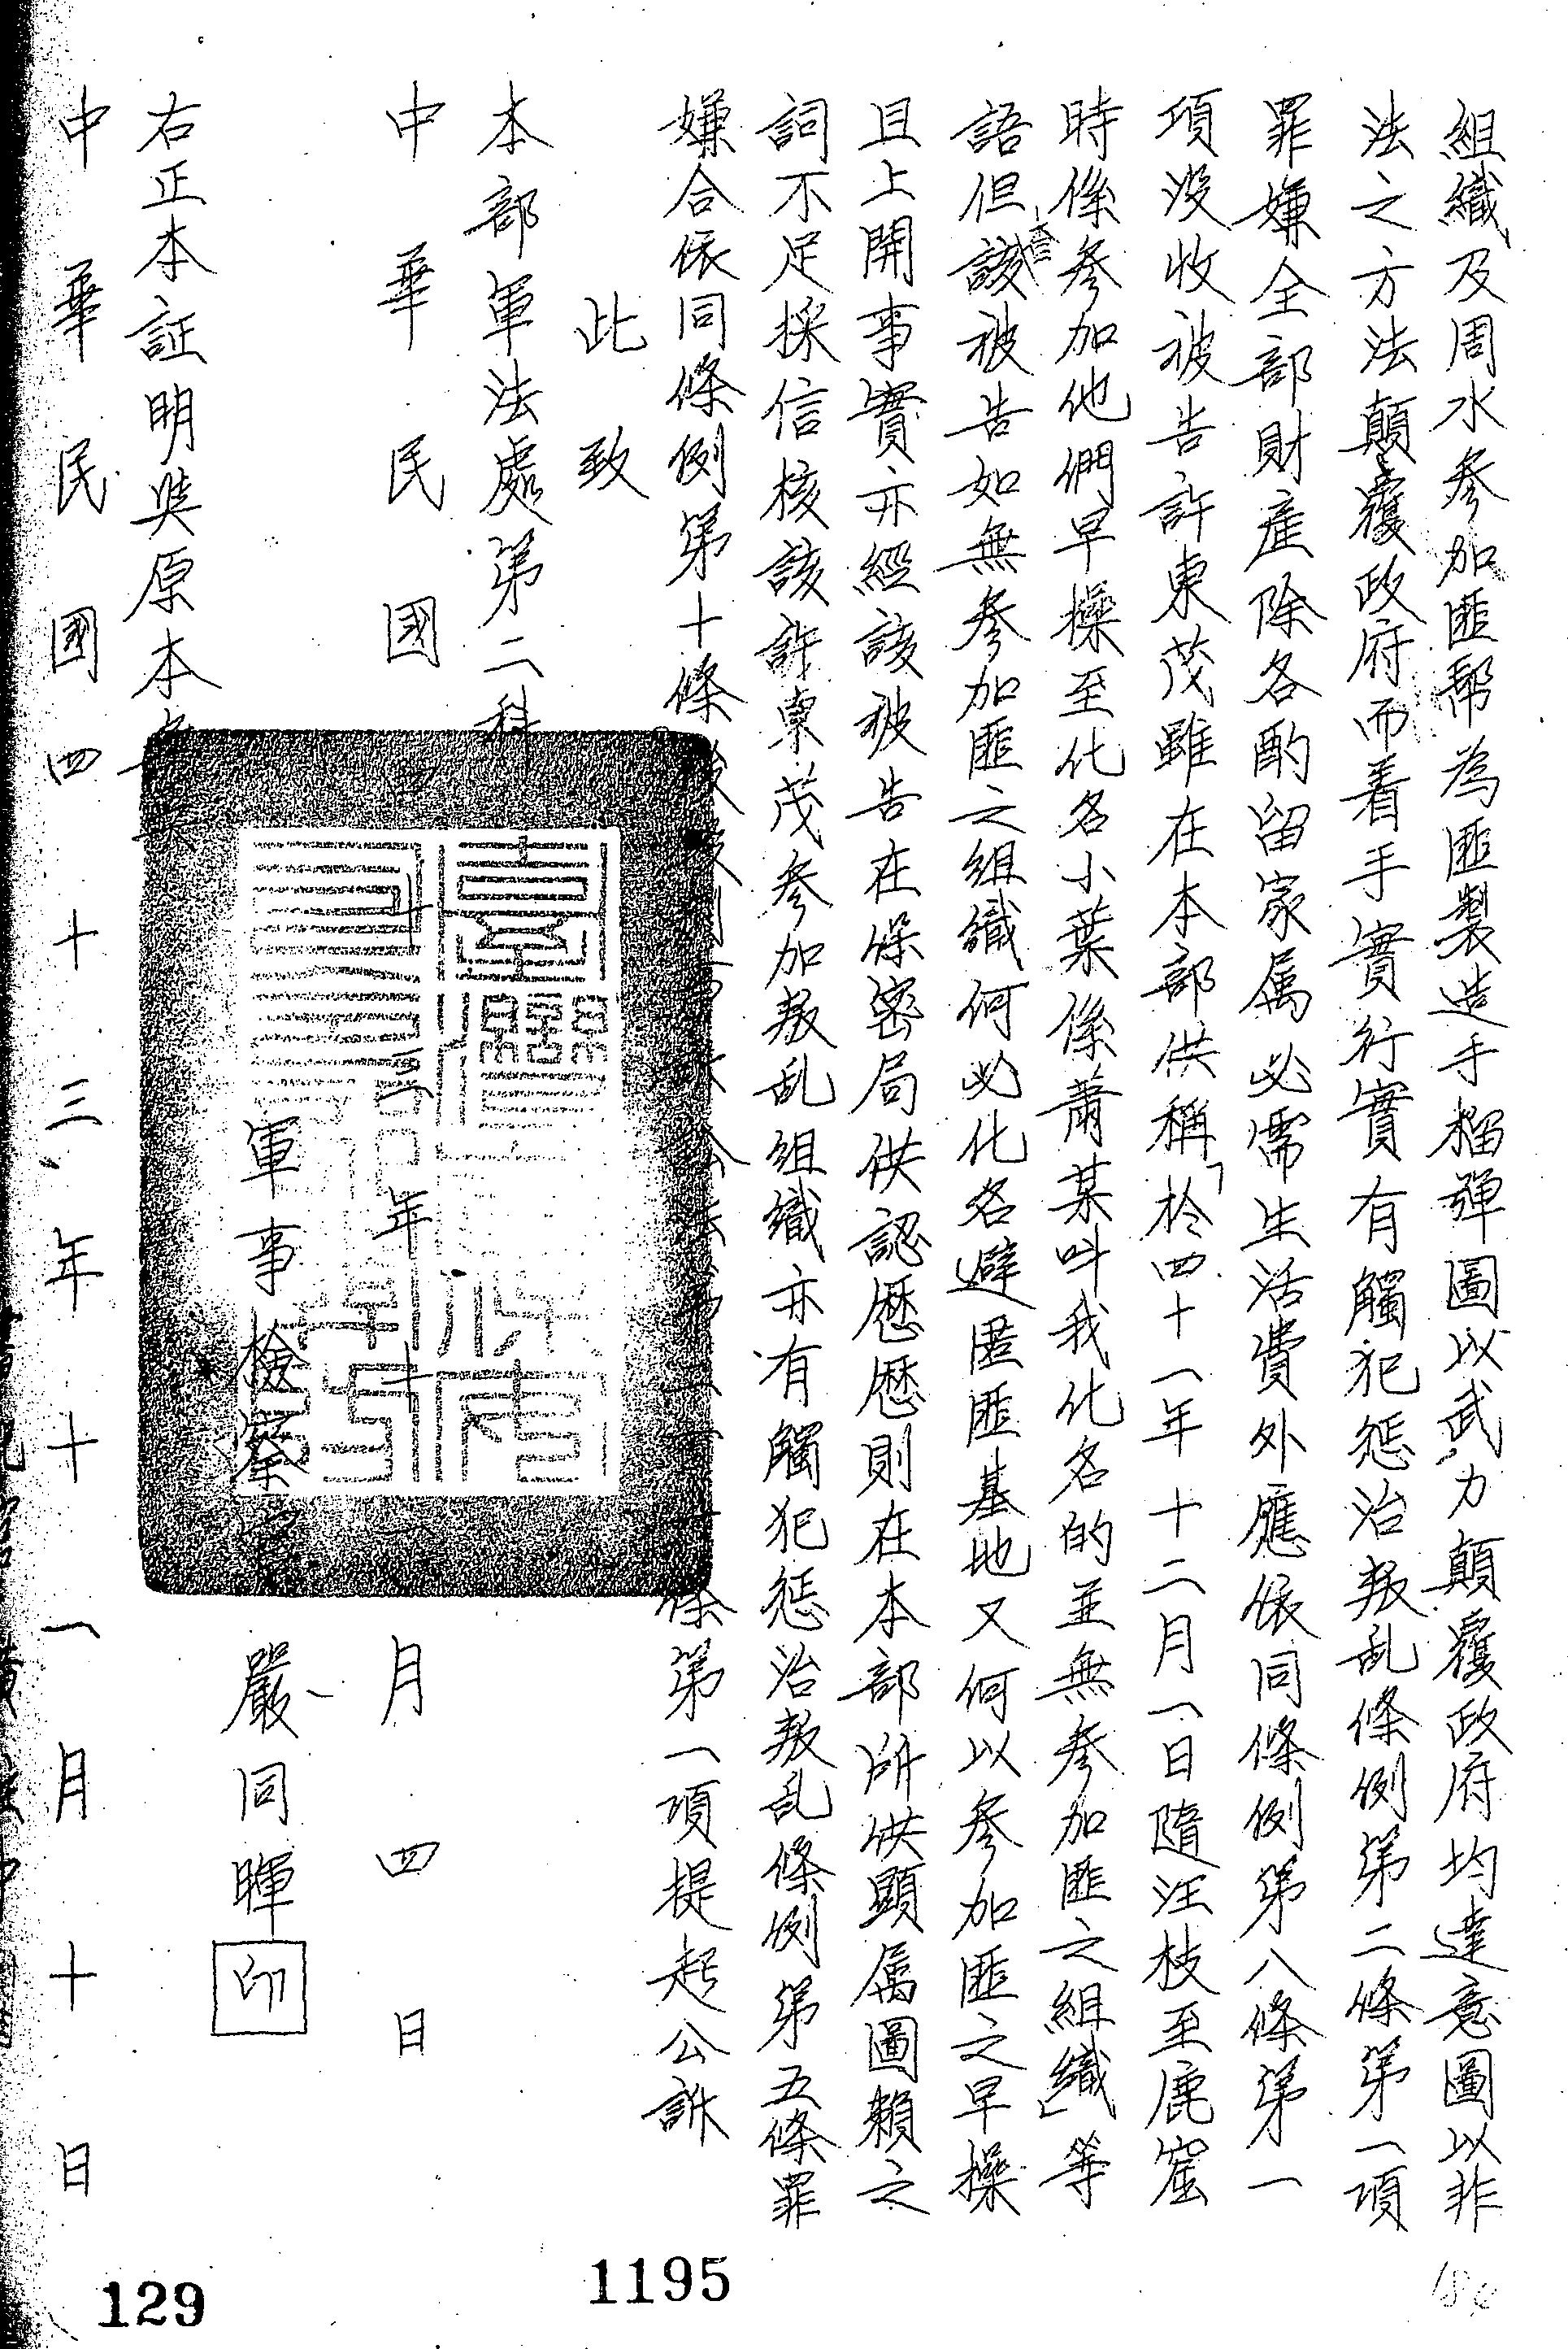 組織及周水參加匪幫為匪製造手榴彈圖以武力顛覆政府均達意圖以非
法之方法顛覆政府而着手實行實有觸犯惩治叛乱條例第二條第一項
罪嫌全部財產除各酌留家属必需生活費外應依同條例第八條第一
項没收被告許東茂雖在本部供稱「於四十一年十二月一日隨汪枝至鹿窟
時係參加他們早操至化名小葉係蕭某叫我化名的並無參加匪之組織」等
語但查該被告如無參加匪之組織何必化名避匿匪基地又何以參加匪之早操
且上開事實亦經該被告在保密局供認歷歷則在本部所供顯属圖賴之
詞不足採信核該許東茂參加叛乱組織亦有觸犯惩治叛乱條例第五條罪
嫌合依同條例第十條 條第一項提起公訴
此致
本部軍法處第二科
中華民國 十三年十 月四日
軍事檢察官 嚴同暉 印
右正本証明與原本
中華民國四十三年十一月十日
1195
129